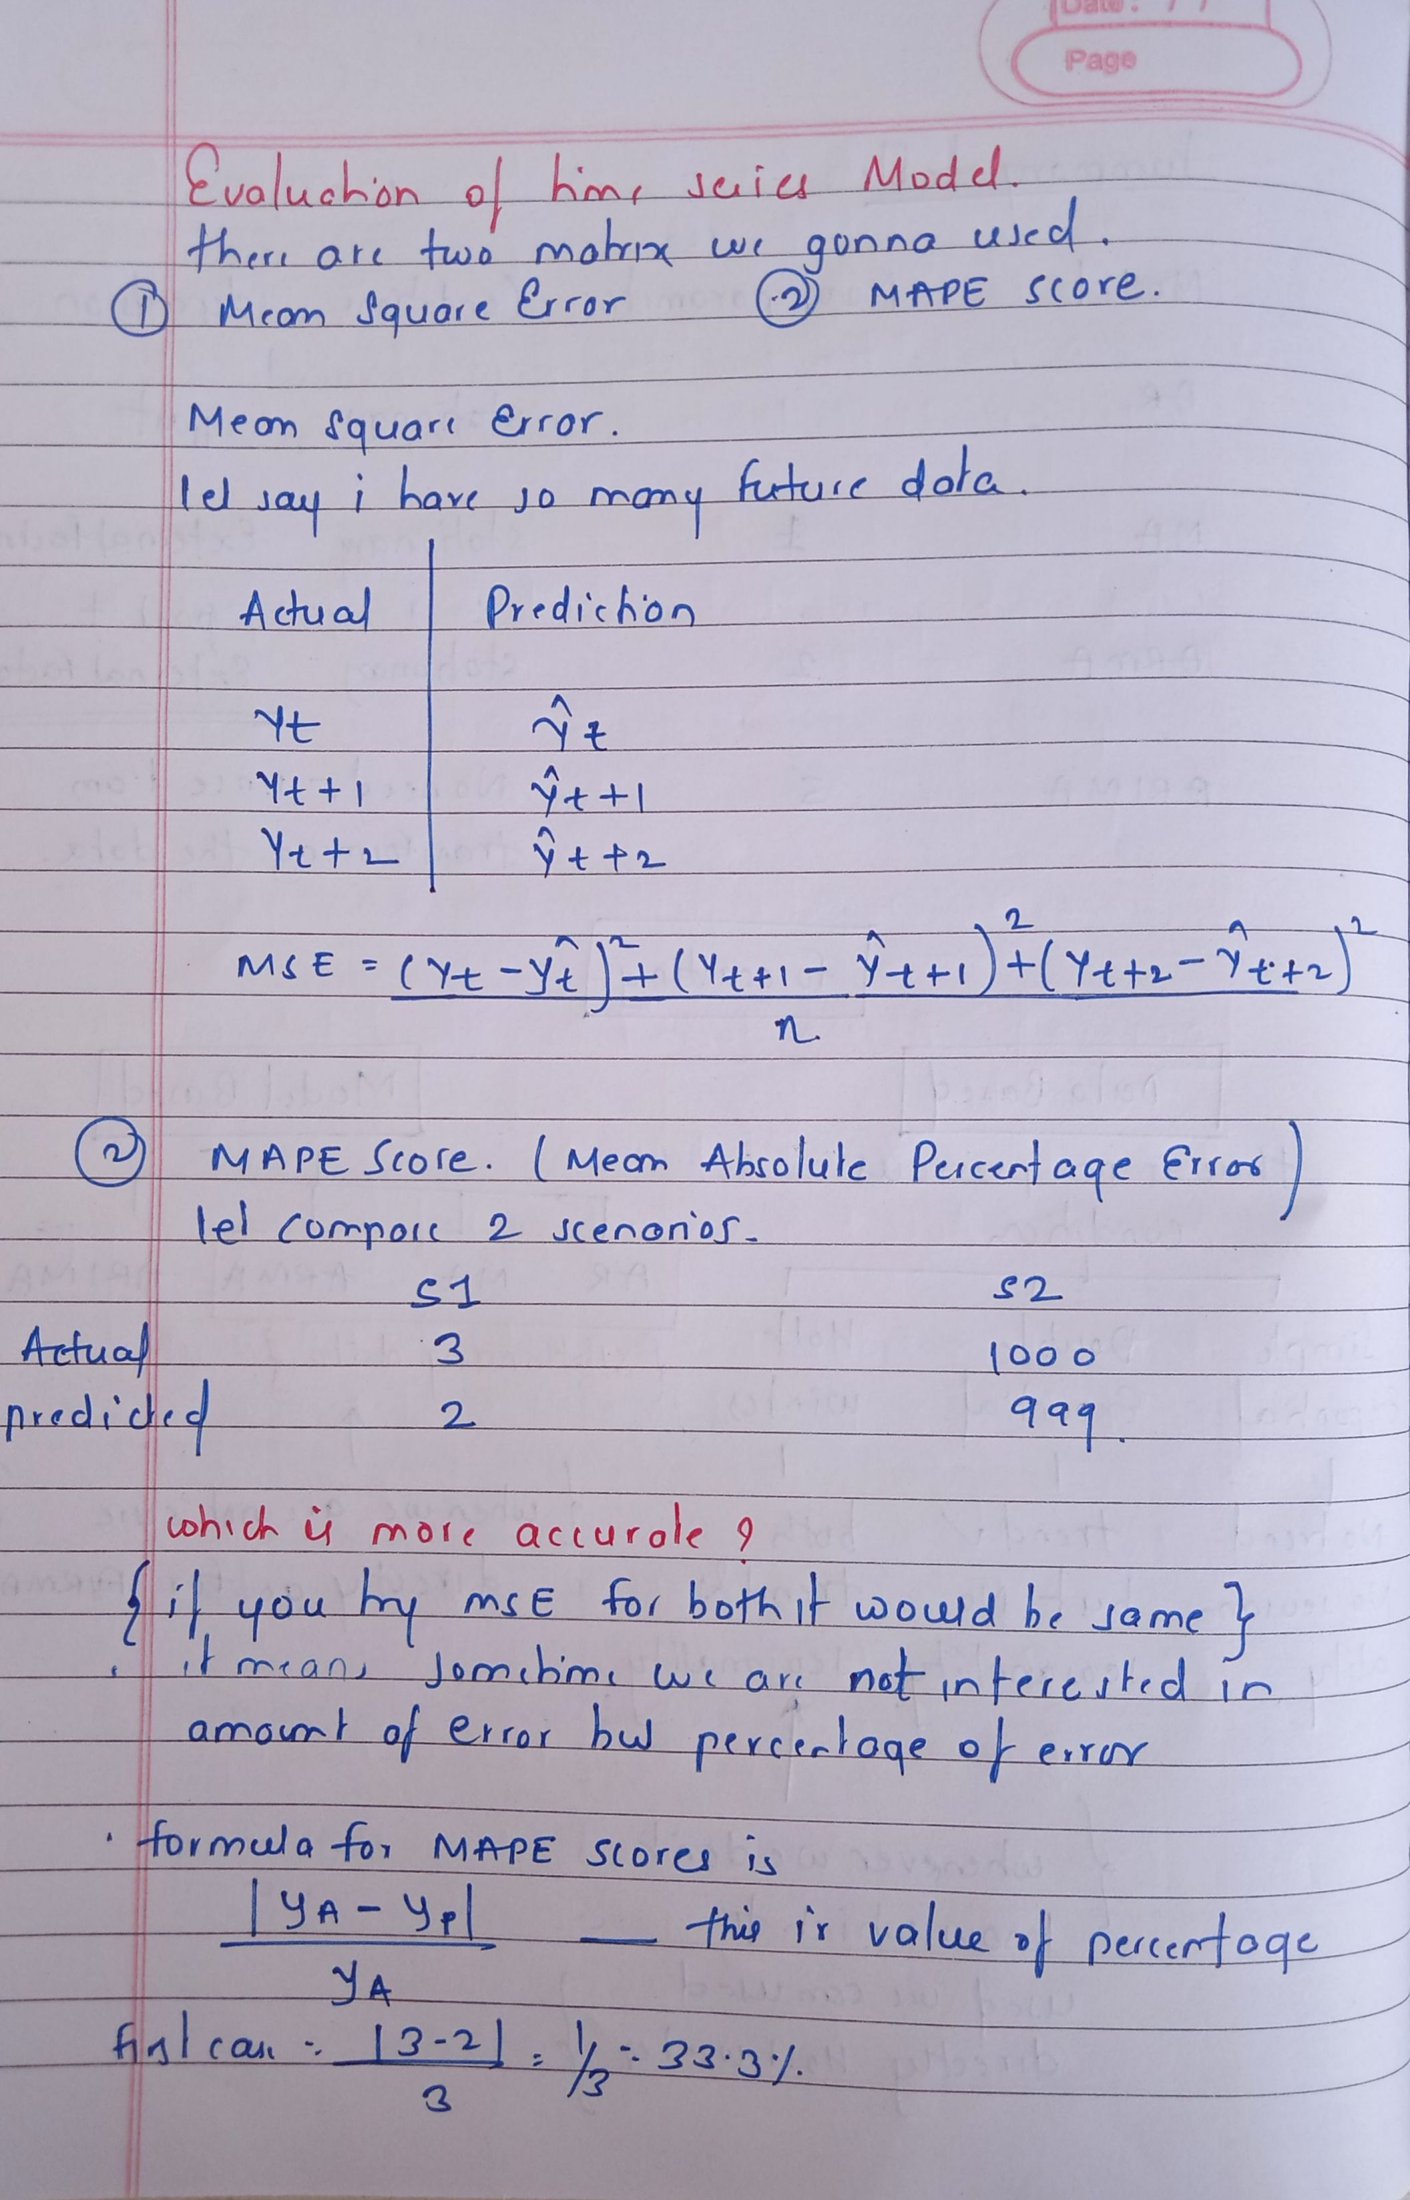 Date: / /
Page
Evaluation of time series Model.
there are two matrix we gonna used.
① Mean Square Error ② MAPE score.
Mean square Error.
let say i have so many future data.
Actual Prediction
yt ŷt
yt+1 ŷt+1
yt+2 ŷt+2
MSE = (yt - ŷt)² + (yt+1 - ŷt+1)² + (yt+2 - ŷt+2)²
n
② MAPE Score. (Mean Absolute Percentage Error)
let compare 2 scenarios.
S1 S2
Actual 3 1000
predicted 2 999.
which is more accurate ?
{ if you try MSE for both it would be same }
it means sometime we are not interested in
amount of error but percentage of error
• formula for MAPE scores is
|yA - yP| — this is value of percentage
yA
first case :. |3-2| = 1/3 :. 33.3%.
3